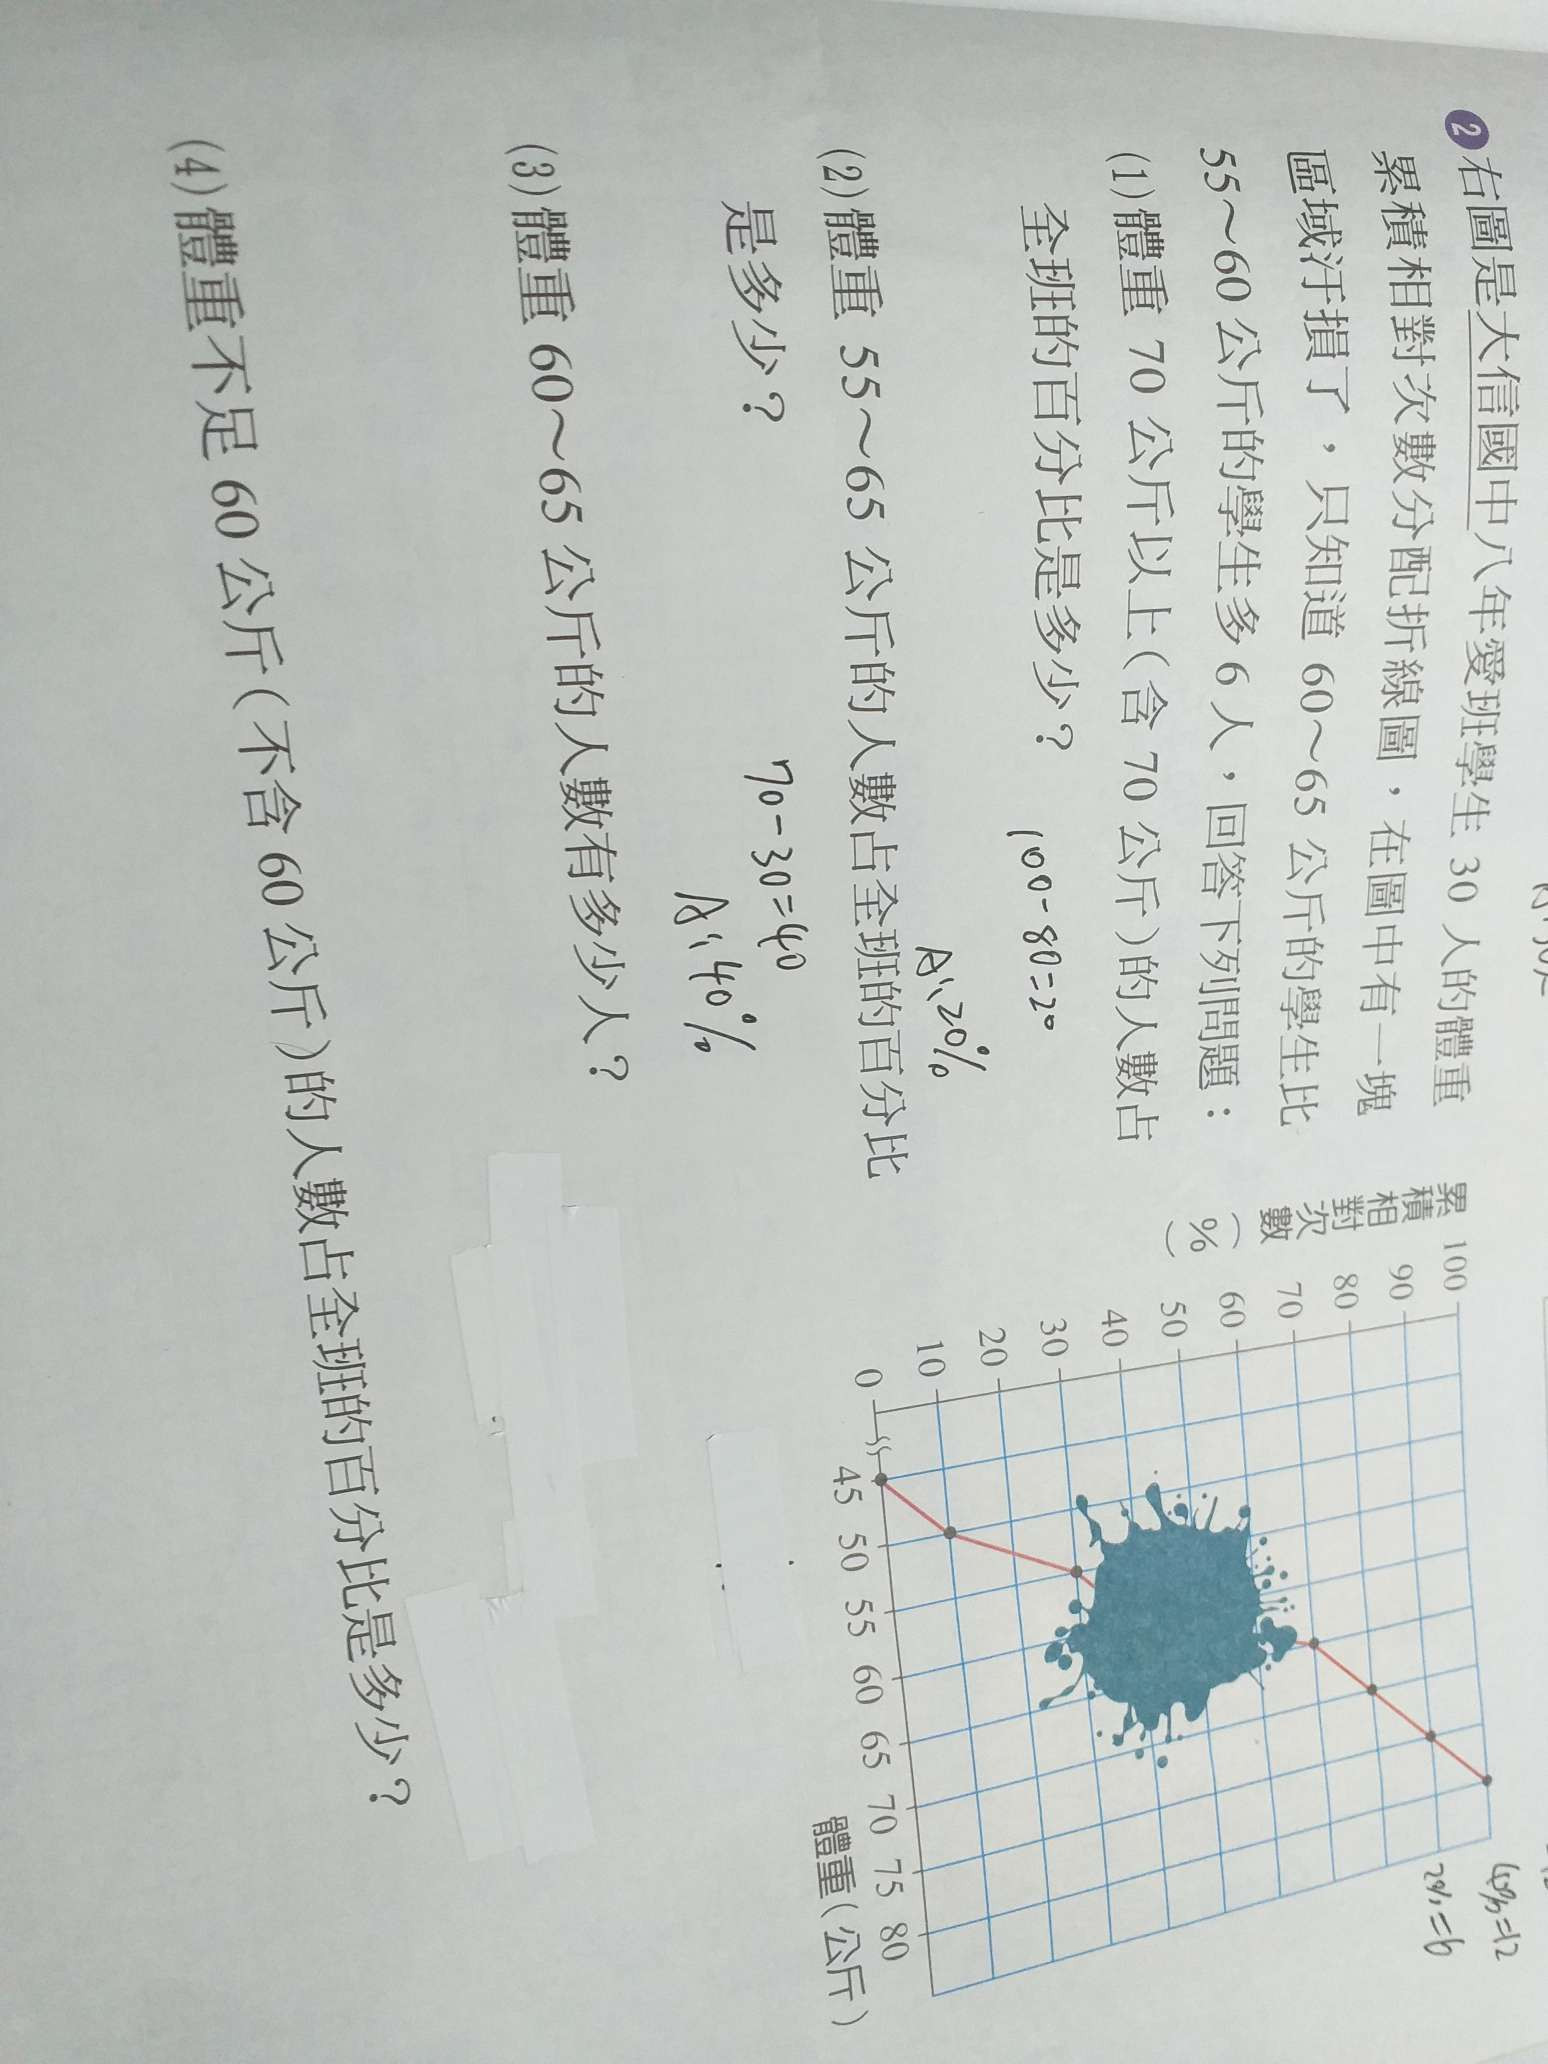 2 右圖是大信國中八年愛班學生 30 人的體重
累積相對次數分配折線圖，在圖中有一塊
區域汙損了，只知道 60～65 公斤的學生比
55～60 公斤的學生多 6 人，回答下列問題：
(1) 體重 70 公斤以上(含 70 公斤)的人數占
全班的百分比是多少？
100-80=20
A:20%
(2) 體重 55～65 公斤的人數占全班的百分比
是多少？
70-30=40
A:40%
(3) 體重 60～65 公斤的人數有多少人？
(4) 體重不足 60 公斤(不含 60 公斤)的人數占全班的百分比是多少？
累積相對次數(%)
100
90
80
70
60
50
40
30
20
10
0
45 50 55 60 65 70 75 80
體重(公斤)
40%=12
20%=6